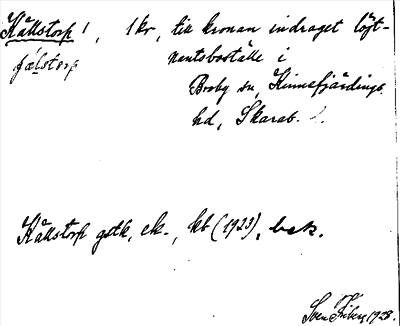 Källstorp 1, 1 kr, till kronan indraget löjt-
fä̀lstorp nantsboställe i
Broby sn, Kinnefjärdings
hd, Skarab. l.
Källstorp gstk, ek., kb (1923), bek.
Sven Friberg 1928.